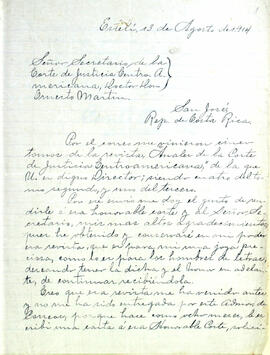 Estelí, 13 de Agosto de 1914
Señor Secretario de la
Corte de Justicia Centro A-
mericana, Doctor don
Ernesto Martin.
San José,
Rep. de Costa Rica.
Por el correo me vinieron cinco
tomos de la revista, Anales de la Corte
de Justicia Centroamericana, de la que
U. es digno Director; siendo cuatro del to-
mo segundo, y uno del tercero.
Por ese envío me doy el gusto de
rendirle a esa honorable corte y al Señor Se-
cretario, mis mas altos agradecimientos,
pues he obtenido y conservaré en mi poder
esa revista, que es para mi una joya pre-
ciosa, como lo es para los hombres de letras,
deseando tener la dicha y el honor en adelan-
te, de continuar recibiéndola.
Creo que esa revista me ha venido antes
y no me ha sido entregada por esta Admon. de
Correos, porque hace como ocho meses, le es-
cribí una carta a esa Honorable Corte, solici-